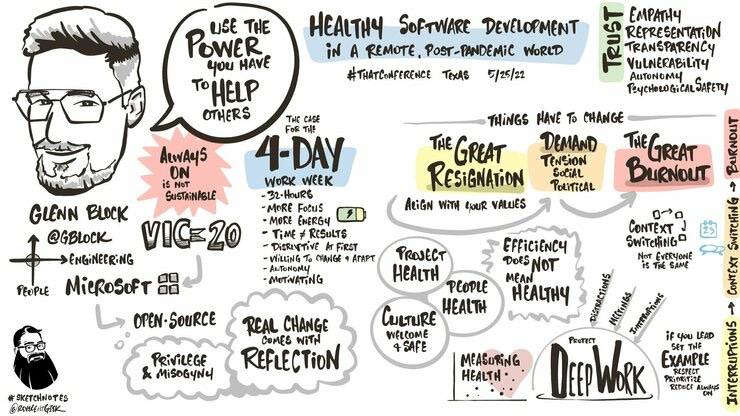 USE THE
POWER
YOU HAVE
TO HELP
OTHERS
HEALTHY SOFTWARE DEVELOPMENT
IN A REMOTE, POST-PANDEMIC WORLD
#THATCONFERENCE TEXAS 5/25/22
TRUST
EMPATHY
REPRESENTATION
TRANSPARENCY
VULNERABILITY
AUTONOMY
PSYCHOLOGICAL SAFETY
ALWAYS
ON
IS NOT
SUSTAINABLE
GLENN BLOCK
@GBLOCK
ENGINEERING
PEOPLE
VIC=20
MICROSOFT
OPEN-SOURCE
PRIVILEGE
& MISOGYNY
THE CASE
FOR THE
4-DAY
WORK WEEK
- 32-HOURS
- MORE FOCUS
- MORE ENERGY
- TIME ≠ RESULTS
- DISRUPTIVE AT FIRST
- WILLING TO CHANGE & ADAPT
- AUTONOMY
- MOTIVATING
REAL CHANGE
COMES WITH
REFLECTION
THINGS HAVE TO CHANGE
THE GREAT
RESIGNATION
DEMAND
TENSION
SOCIAL
POLITICAL
THE GREAT
BURNOUT
ALIGN WITH YOUR VALUES
PROJECT
HEALTH
PEOPLE
HEALTH
CULTURE
WELCOME
& SAFE
EFFICIENCY
DOES NOT
MEAN
HEALTHY
CONTEXT
SWITCHING
NOT EVERYONE
IS THE SAME
23
MEASURING
HEALTH
DISTRACTIONS
MEETINGS
INTERRUPTIONS
PROTECT
DEEP WORK
IF YOU LEAD
SET THE
EXAMPLE
RESPECT
PRIORITIZE
REDUCE ALWAYS
ON
INTERRUPTIONS → CONTEXT SWITCHING → BURNOUT
#SKETCHNOTES
@REVERENTGEEK